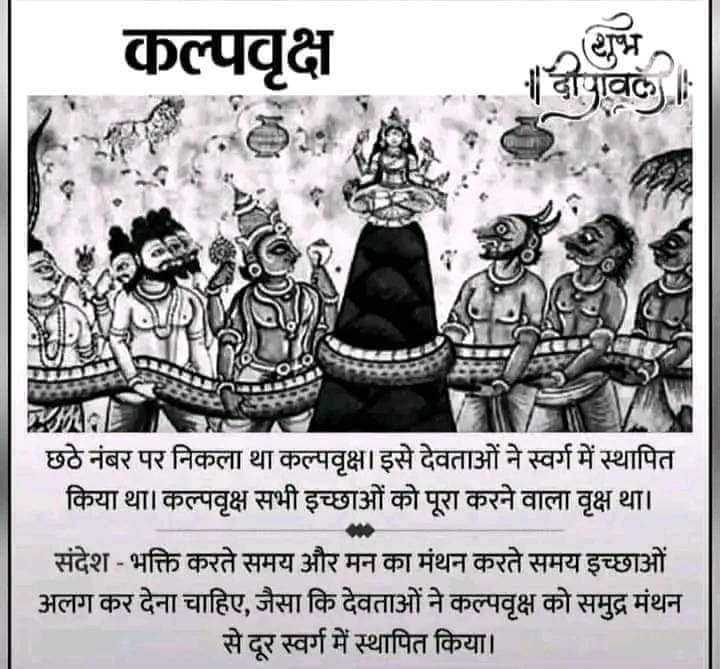 कल्पवृक्ष
शुभ
॥ दीपावली ॥
छठे नंबर पर निकला था कल्पवृक्ष। इसे देवताओं ने स्वर्ग में स्थापित
किया था। कल्पवृक्ष सभी इच्छाओं को पूरा करने वाला वृक्ष था।
संदेश - भक्ति करते समय और मन का मंथन करते समय इच्छाओं
अलग कर देना चाहिए, जैसा कि देवताओं ने कल्पवृक्ष को समुद्र मंथन
से दूर स्वर्ग में स्थापित किया।